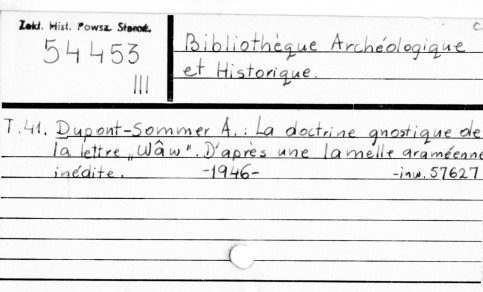 Zakł. Hist. Powsz. Staroż.
54453
III
C.
Bibliothèque Archéologique
et Historique.
T.41. Dupont-Sommer A.: La doctrine gnostique de
la lettre „Wâw". D'après une lamelle araméenne
inédite. -1946- -inw. 57627